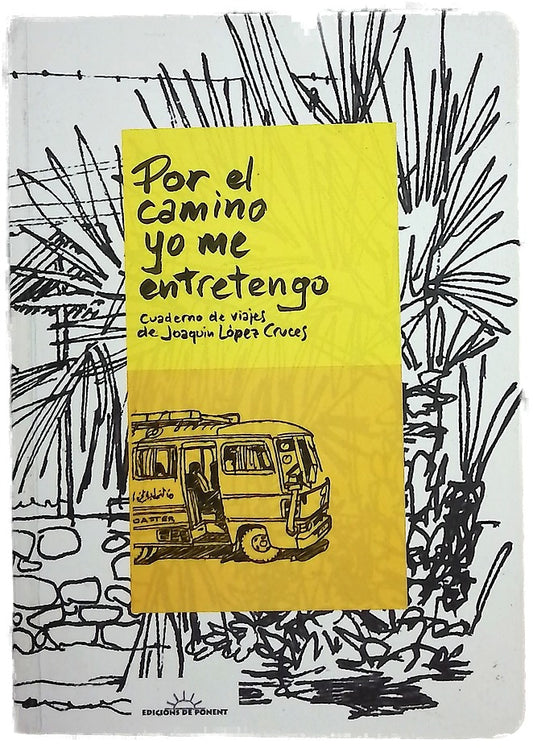 Por el
camino
yo me
entretengo
Cuaderno de viajes
de Joaquín López Cruces
OASTER
EDICIONS DE PONENT